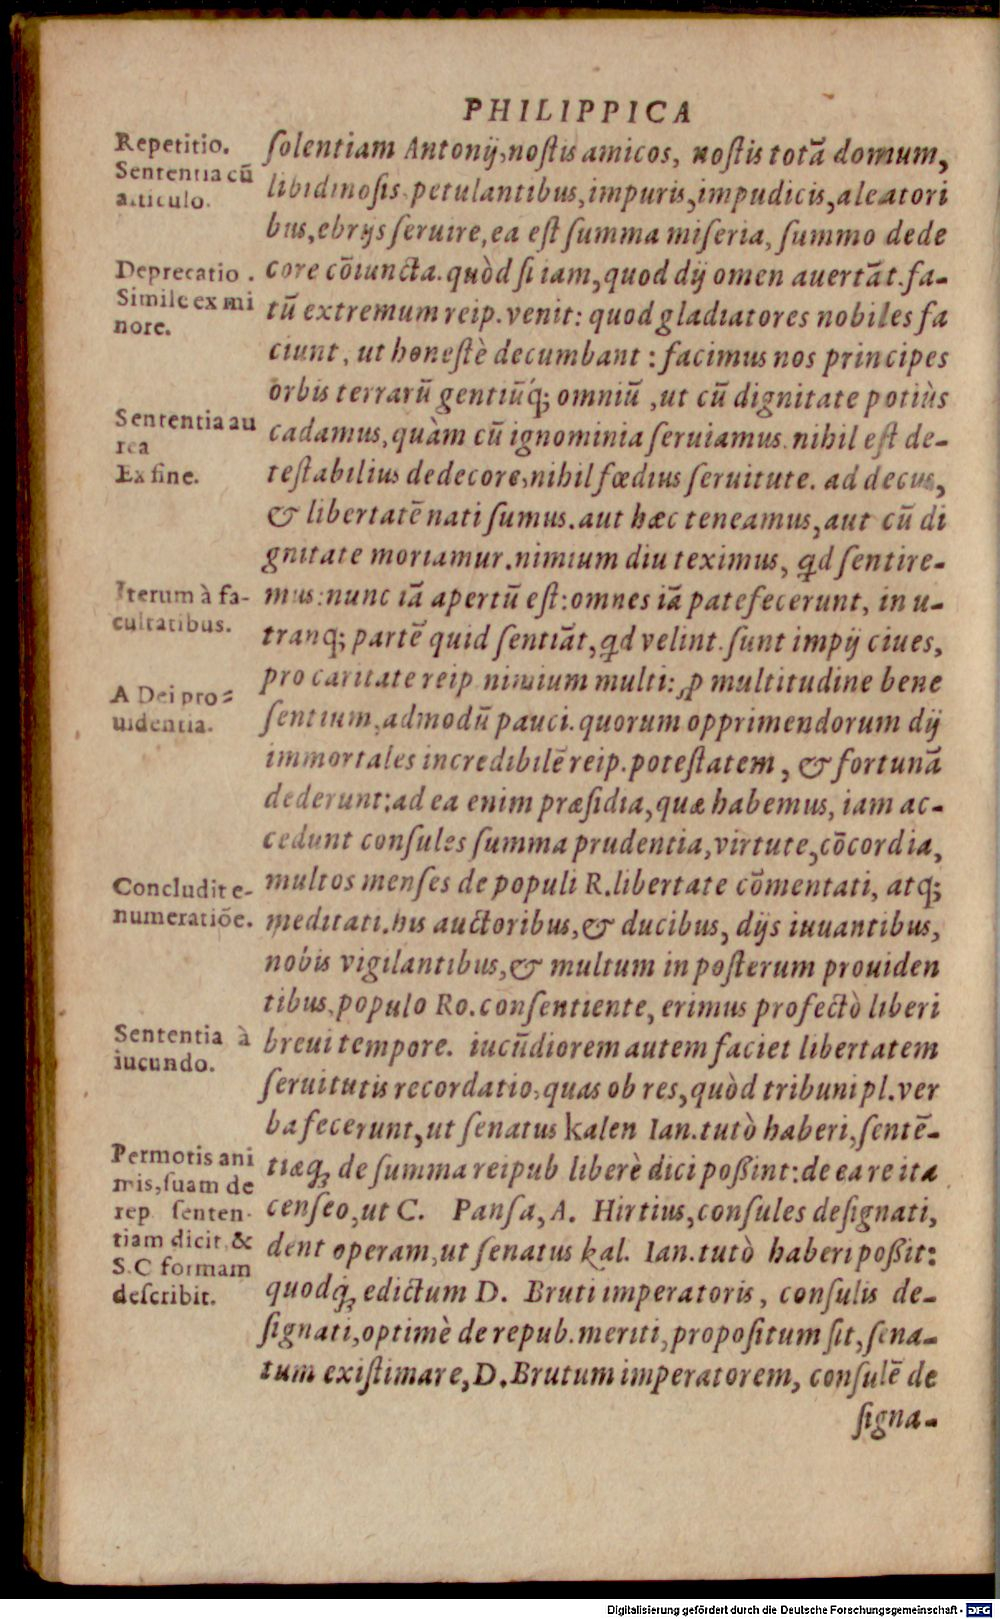 PHILIPPICA
Repetitio.
Sententia cū
articulo.
Deprecatio.
Simile ex mi
nore.
Sententia au
rea
Ex fine.
Iterum à fa-
cultatibus.
A Dei pro=
uidentia.
Concludit e-
numeratiōe.
Sententia à
iucundo.
Permotis ani
mis, suam de
rep senten-
tiam dicit, &
S.C formam
describit.
ſolentiam Antonij, noſtis amicos, noſtis totā domum,
libidinoſis. petulantibus, impuris, impudicis, aleatori
bus, ebrijs ſeruire, ea eſt ſumma miſeria, ſummo dede
core cōiuncta. quòd ſi iam, quod dij omen auertāt. fa-
tū extremum reip. venit: quod gladiatores nobiles fa
ciunt, ut honeſtè decumbant: facimus nos principes
orbis terrarū gentiūq́; omniū, ut cū dignitate potiùs
cadamus, quàm cū ignominia ſeruiamus. nihil eſt de-
teſtabilius dedecore, nihil fœdius ſeruitute. ad decus,
& libertatē nati ſumus. aut hæc teneamus, aut cū di
gnitate moriamur. nimium diu teximus, qd ſentire-
mus: nunc iā apertū eſt: omnes iā patefecerunt, in u-
tranq; partē quid ſentiāt, qd velint. ſunt impij ciues,
pro caritate reip nimium multi: ꝓ multitudine bene
ſentium, admodū pauci. quorum opprimendorum dij
immortales incredibilē reip. poteſtatem, & fortunā
dederunt: ad ea enim præſidia, quæ habemus, iam ac-
cedunt conſules ſumma prudentia, virtute, cōcordia,
multos menſes de populi R. libertate cōmentati, atq;
meditati. his auctoribus, & ducibus, dijs iuuantibus,
nobis vigilantibus, & multum in poſterum prouiden
tibus, populo Ro. conſentiente, erimus profectò liberi
breui tempore. iucūdiorem autem faciet libertatem
ſeruitutis recordatio, quas ob res, quòd tribuni pl. ver
ba fecerunt, ut ſenatus kalen Ian. tutò haberi, ſentē-
tiæq́; de ſumma reipub liberè dici poßint: de ea re ita
cenſeo, ut C. Panſa, A. Hirtius, conſules deſignati,
dent operam, ut ſenatus kal. Ian. tutò haberi poßit:
quodq́; edictum D. Bruti imperatoris, conſulis de-
ſignati, optimè de repub. meriti, propoſitum ſit, ſena-
tum exiſtimare, D. Brutum imperatorem, conſulē de
ſigna-
Digitalisierung gefördert durch die Deutsche Forschungsgemeinschaft - DFG